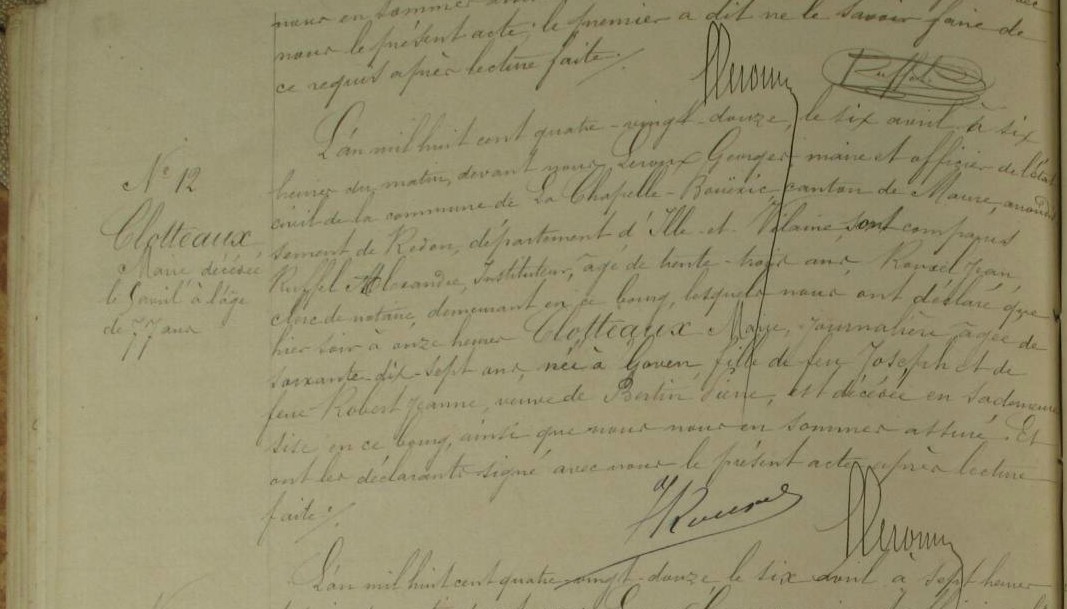 nous en sommes
nous le présent acte, le premier a dit ne le savoir faire de
ce requis après lecture faite./.
Leroux
Ruffel
L'an mil huit cent quatre-vingt-douze, le six avril à six
N° 12
heures du matin, devant nous Leroux Georges, maire et officier de l'état
civil de la commune de La Chapelle-Bouëxic, canton de Maure, arrondis
Clotteaux
sement de Redon, département d'Ille-et-Vilaine, sont comparus
Marie décédée
Ruffel Alexandre, Instituteur, âgé de trente-trois ans, Rouxel Jean,
le 5 avril à l'âge
clerc de notaire, demeurant en ce bourg, lesquels nous ont déclaré que
de 77 ans
hier soir à onze heures Clotteaux Marie, Journalière, âgée de
soixante-dix-sept ans, née à Goven, fille de feu Joseph et de
feue Robert Jeanne, veuve de Bertin Pierre, est décédée en sa demeure
sise en ce bourg, ainsi que nous nous en sommes assuré. Et
ont les déclarants signé avec nous le présent acte après lecture
faite./.
Rouxel
Leroux
L'an mil huit cent quatre-vingt-douze le six avril à sept heures